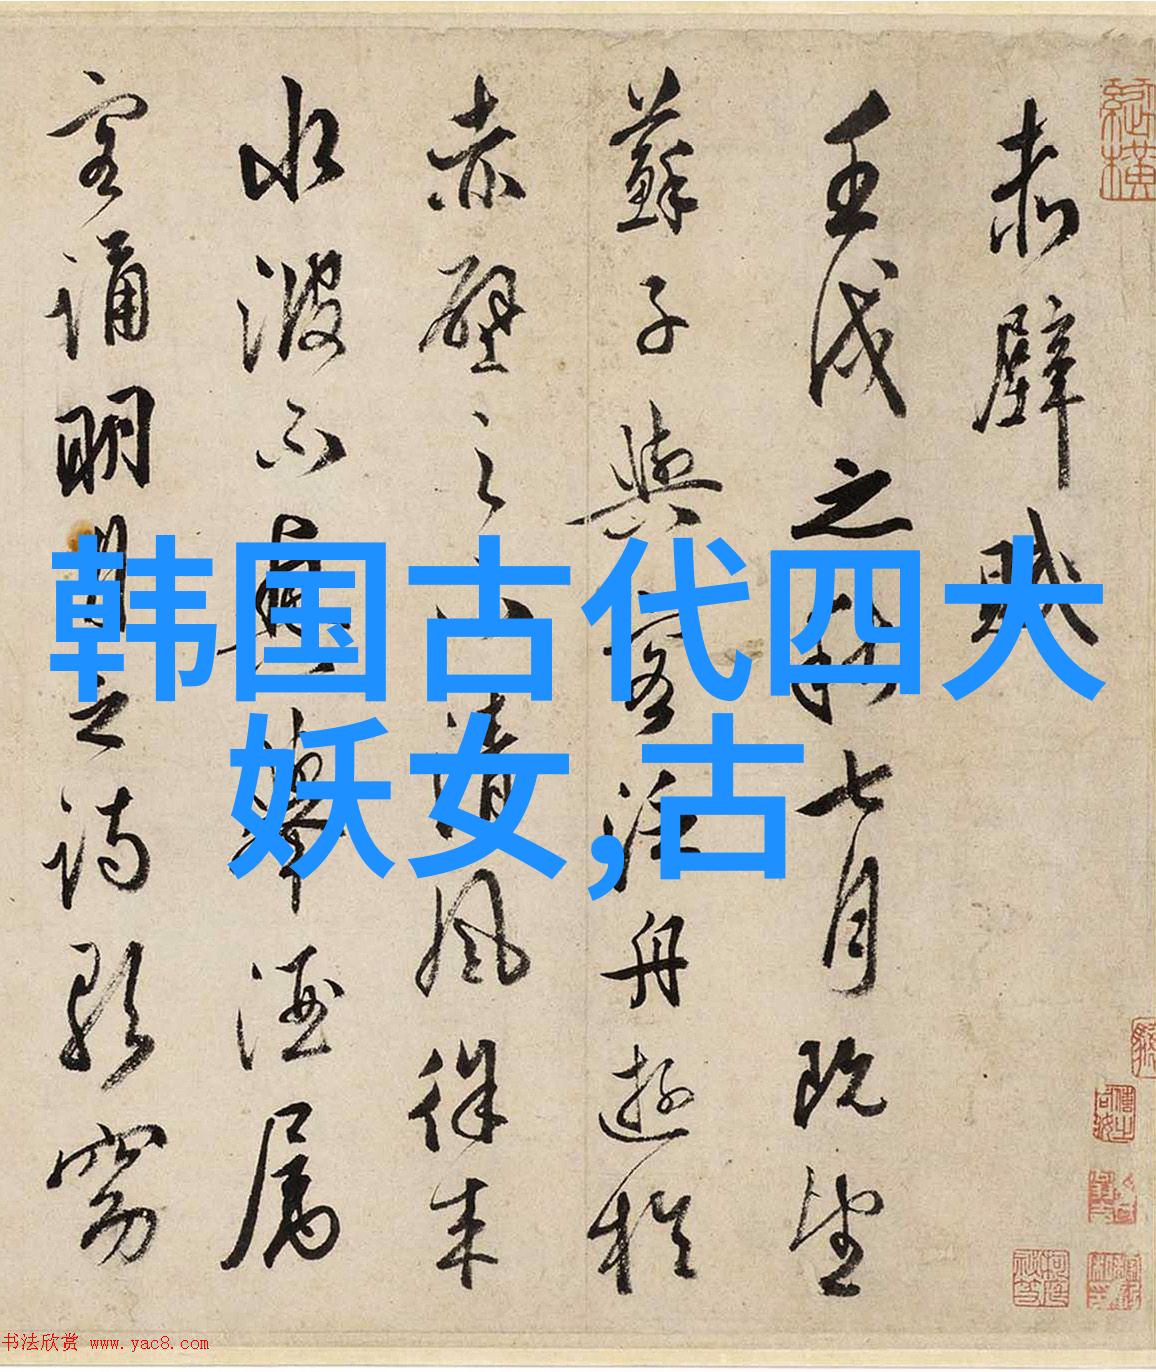 赤壁賦
壬戌之秋七月既望
蘇子與客泛舟遊於
赤壁之下清風徐来
水波不興舉酒属
客誦明月之詩歌窈
韩国古代四大
妖女,古
书法欣赏 www.yac8.com